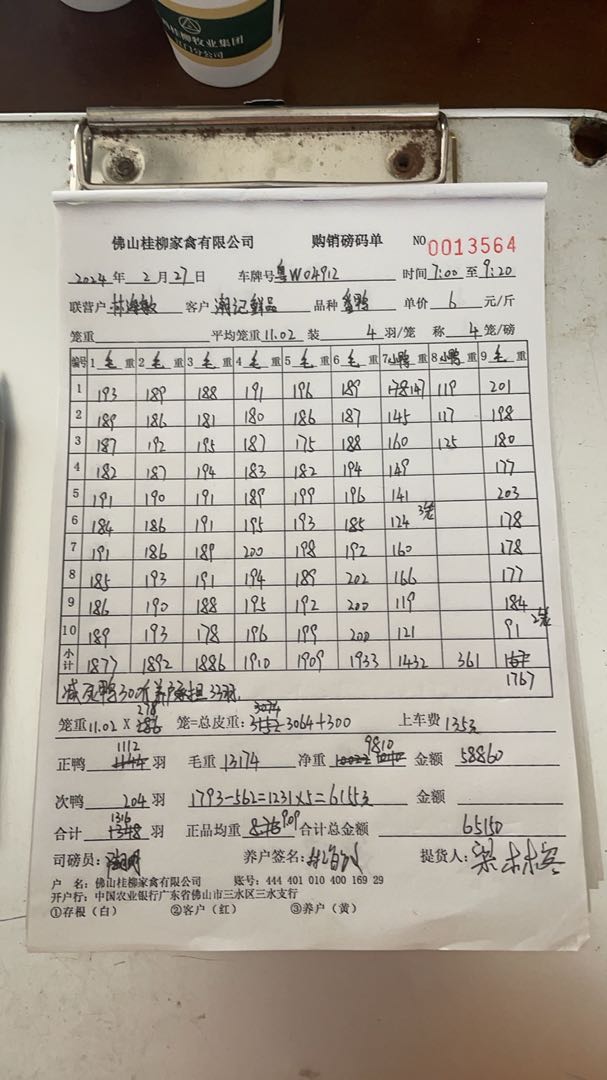 桂柳牧业集团
江门分公司
佛山桂柳家禽有限公司 购销磅码单 NO 0013564
2024 年 2 月 27 日 车牌号 粤W04912 时间 7:00 至 9:20
联营户 客户 潮记鲜品 品种 单价 6 元/斤
笼重 平均笼重 11.02 装 4 羽/笼 称 4 笼/磅
编号 1 毛 重 2 毛 重 3 毛 重 4 毛 重 5 毛 重 6 毛 重 7 小鸭 重 8 小鸭 重 9 毛 重
1 193 189 188 191 196 189 178 147 119 201
2 189 186 181 180 186 187 145 117 198
3 187 192 195 187 175 188 160 125 180
4 182 187 194 183 182 194 149 177
5 191 190 191 189 199 196 141 203
6 184 186 191 195 193 185 124 3笼 178
7 191 186 189 200 198 192 160 178
8 185 193 191 194 189 202 166 177
9 186 190 188 195 192 200 119 184
10 189 193 178 196 199 200 121 91 2笼
小计 1877 1892 1886 1910 1909 1933 1432 361 1767
减 鸭300斤养户承担33羽
笼重 11.02 X 278 笼=总皮重: 3074 3064+300 上车费 1353
正鸭 1112 羽 毛重 13174 净重 9810 金额 58860
次鸭 204 羽 1793-562=1231×5=6155 金额
合计 1316 羽 正品均重 合计总金额 65150
司磅员: 养户签名: 提货人:
户 名: 佛山桂柳家禽有限公司 账号: 444 401 010 400 169 29
开户行: 中国农业银行广东省佛山市三水区三水支行
①存根(白) ②客户(红) ③养户(黄)